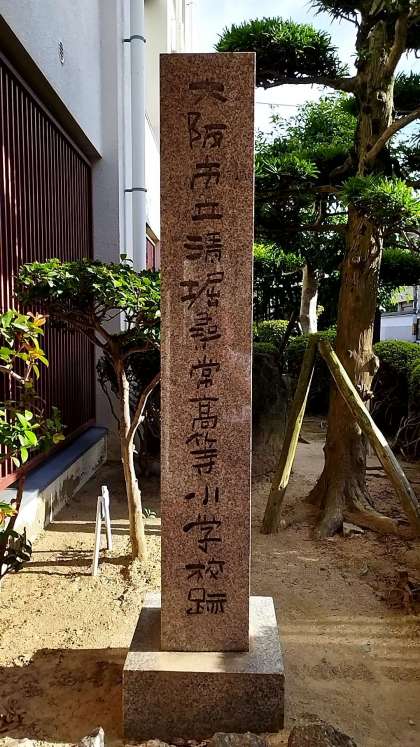 大阪市立清堀尋常高等小学校跡